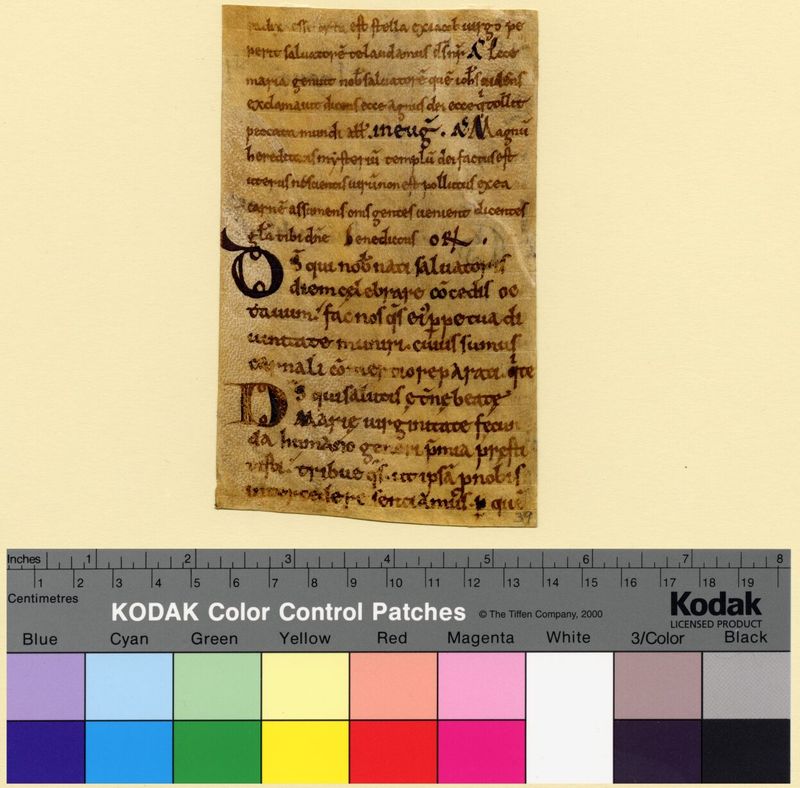 radix iesse orta est stella ex iacob virgo pe
perit saluatorē te laudamus ds̄ nr̄. A Ecce
maria genuit nob̄ saluatorē quē ioh̄s uidens
exclamauit dicens ecce agnus dei ecce q̇ tollit
peccata mundi all̄. in euḡ. Æ Magnū
hereditatis mysteriū templū dei factus est
uterus nescientis uirū non est pollutus ex ea
carnē assumens om̄s gentes uenient dicentes
gl̄a tibi dn̄e benedictus OR̄.
Ds̄ qui nob̄ nati saluatoris
diem celebrare cōcedis oc
tauum. fac nos qs̄ ei' ꝑpetua di
uinitate muniri. cuius sumus
carnali cōmertio reparati. q̇ te
Ds̄ qui salutis ęt̄nę beatę
Marię uirginitate fecun
da humano generi p̄mia presti
tisti. tribue qs̄. ut ipsā ꝓ nobis
intercedere sentiamus. ꝑ quē
39
Inches 1 2 3 4 5 6 7 8
Centimetres 1 2 3 4 5 6 7 8 9 10 11 12 13 14 15 16 17 18 19
KODAK Color Control Patches © The Tiffen Company, 2000 Kodak
LICENSED PRODUCT
Blue Cyan Green Yellow Red Magenta White 3/Color Black